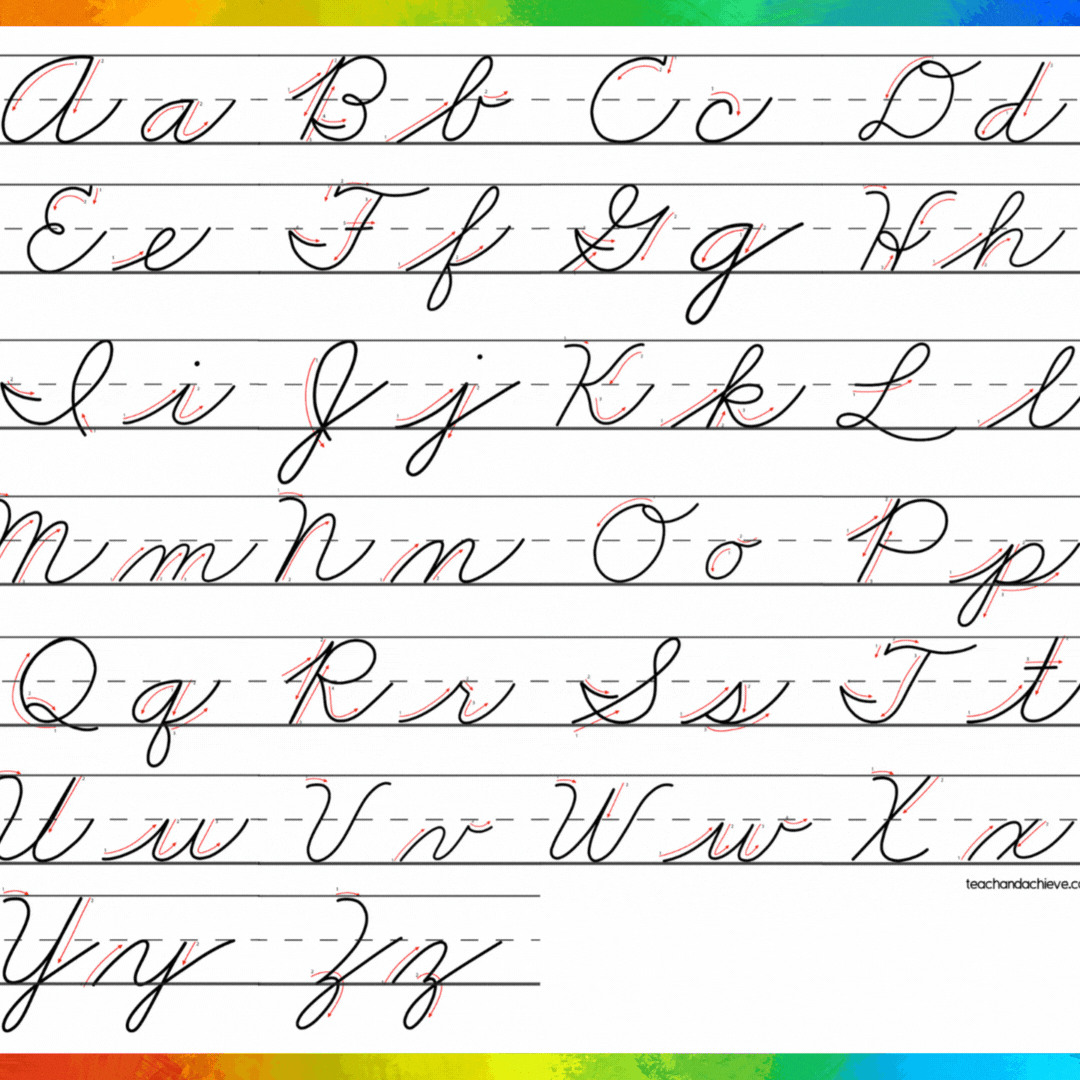 Aa Bb Cc Dd
Ee Ff Gg Hh
Ii Jj Kk Ll
Mm Nn Oo Pp
Qq Rr Ss Tt
Uu Vv Ww Xx
teachandachieve.co
Yy Zz